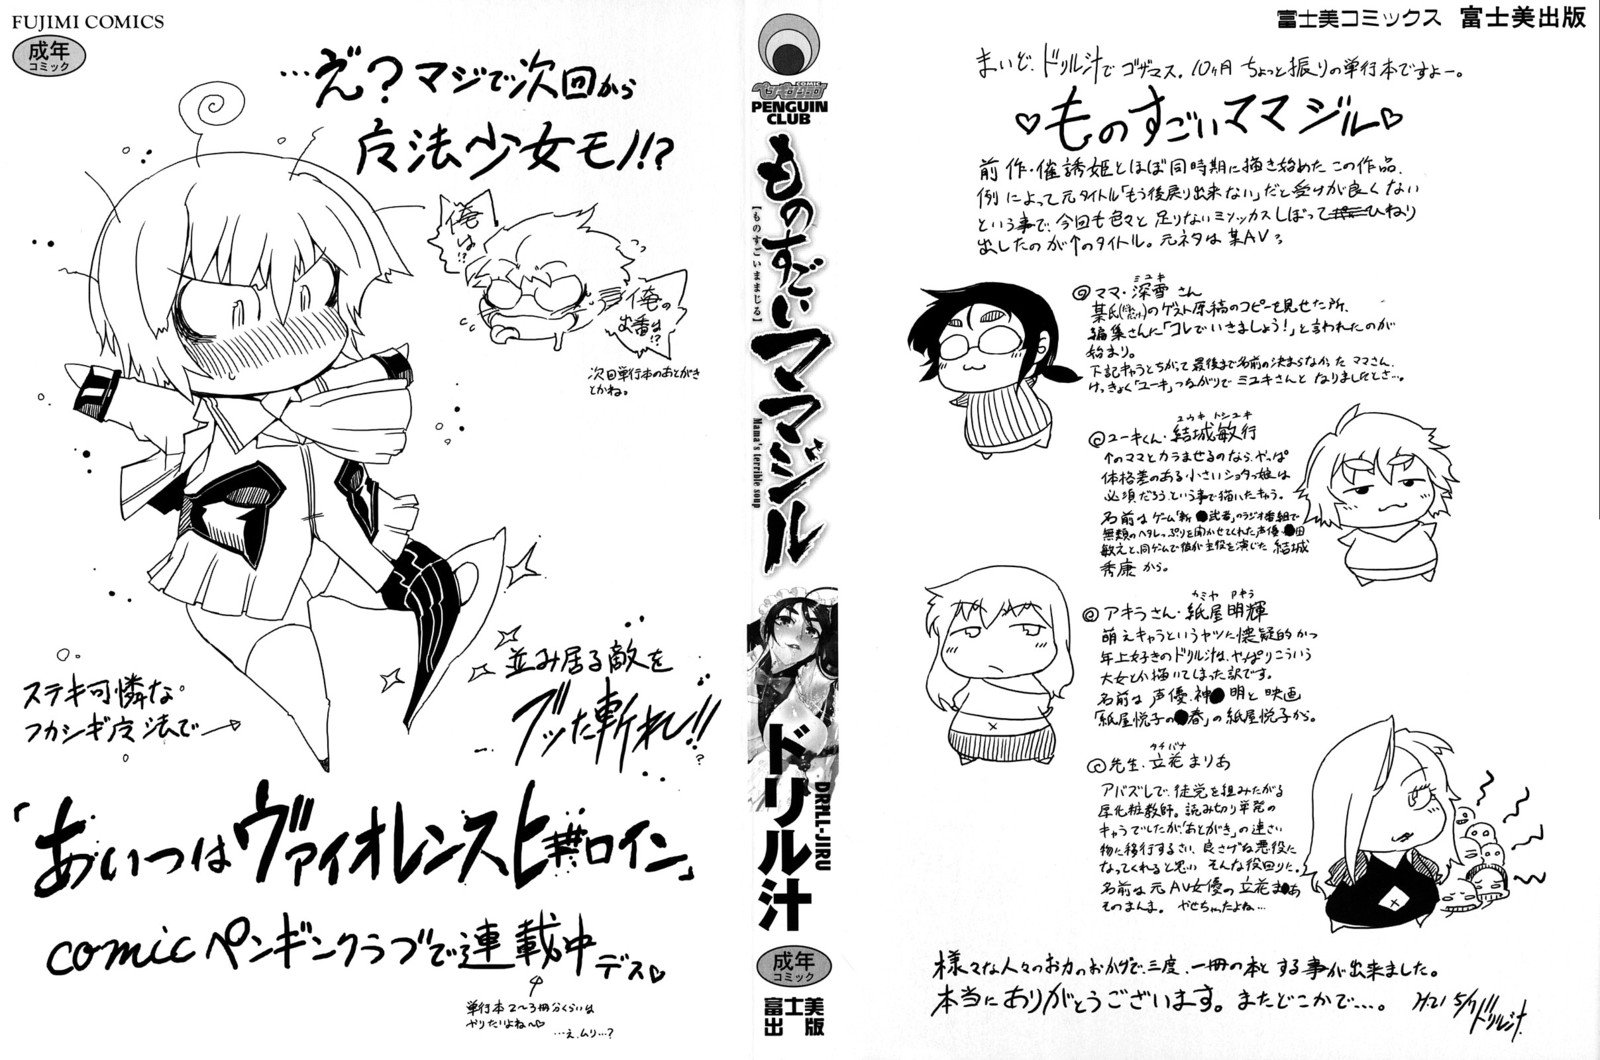 FUJIMI COMICS
成年
コミック
…え?マジで次回から
魔法少女モノ!?
俺は!?
俺の出番は!?
次回単行本のあとがき
とかね。
ステキ可憐な
フカシギ魔法で→
並み居る敵を
ブッた斬れし!!
?
「あいつはヴァイオレンスヒロイン」
comicペンギンクラブで連載中デス♡
単行本2〜3冊分くらいは
やりたいよね〜♡
…え、ムリ…?
COMIC
ペンギンクラブ
PENGUIN
CLUB
ものすごいママジル
【ものすごいままじる】
Mama's terrible soup
ドリル汁
DRILL-JIRU
成年
コミック
富士美
出版
富士美コミックス 富士美出版
まいど、ドリル汁でゴザマス。10ヶ月ちょっと振りの単行本ですよー。
♡ものすごいママジル♡
前作・催誘姫とほぼ同時期に描き始めたこの作品、
例によって元タイトル「もう後戻り出来ない」だと受けが良くない
という事で、今回も色々と足りないミソッカスしぼってひねり
出したのが↑のタイトル。元ネタは某AV?
ミユキ
◎ママ・深雪さん
某氏のゲスト原稿のコピーを見せた所、
編集さんに「コレでいきましょう!」と言われたのが
始まり。
下記キャラとちがって最後まで名前の決まらなかったママさん、
けっきょく「ユーキ」つながりでミユキさんとなりましたとさ…。
ユウキ トシユキ
◎ユーキくん・結城敏行
↑のママとカラませるのなら、やっぱ
体格差のある小さいショタっ姫は
必須だろうという事で描いたキャラ。
名前はゲーム「新●武者」のラジオ番組で
無類のヘタレっぷりを聞かせてくれた声優・●田
敏えと、同ゲームで彼が主役を演じた結城
秀康から。
カミヤ アキラ
◎アキラさん・紙屋明輝
萌えキャラというヤツに懐疑的かつ
年上好きのドリル汁は、やっぱりこういう
大女とか描いてしまった訳です。
名前は声優、神●明と映画
「紙屋悦子の●春」の紙屋悦子から。
タチバナ
◎先生、立花まりあ
アバズレで、徒党を組みたがる
厚化粧教師。読み切り単発の
キャラでしたが「あとがき」の連さい
物に移行するさい、良さげな悪役に
なってくれると思いそんな役回りに。
名前は元AV女優の立花ま●あ
そのまんま。やせちゃったよね…
様々な人々のお力のおかげで、三度、一冊の本とする事が出来ました。
本当にありがとうございます。またどこかで…。 H21 5/7 ドリル汁